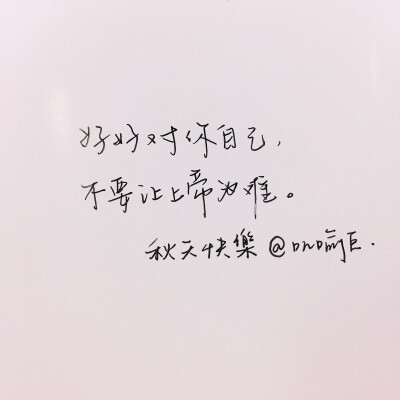 好好对你自己,
不要让上帝为难。
秋天快樂 @